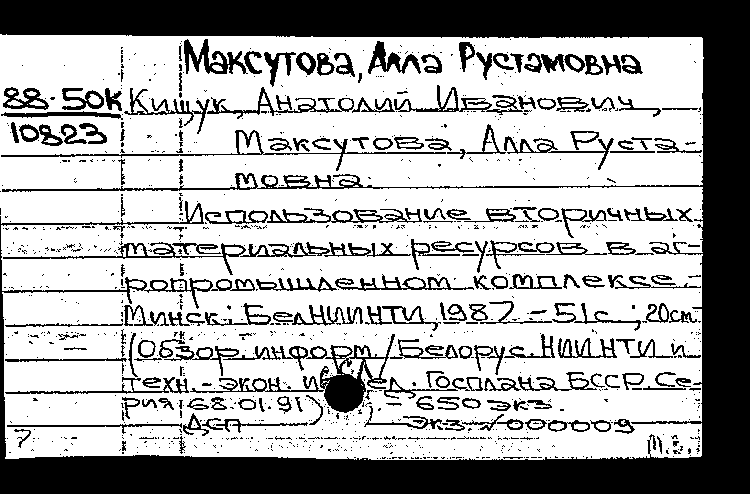 Максутова, Алла Рустамовна
88-50К Кищук, Анатолий Иванович,
10823
Максутова, Алла Руста-
мовна.
Использование вторичных
материальных ресурсов в аг-
ропромышленном комплексе.-
Минск: БелНИИНТИ, 1987 - 51с ; 20см
(Обзор. информ. / Белорус. НИИНТИ и
техн.-экон. исслед. Госплана БССР. Се-
рия 68.01.91). - 650 экз.
ДСП Экз. №000009
7 М.Б.